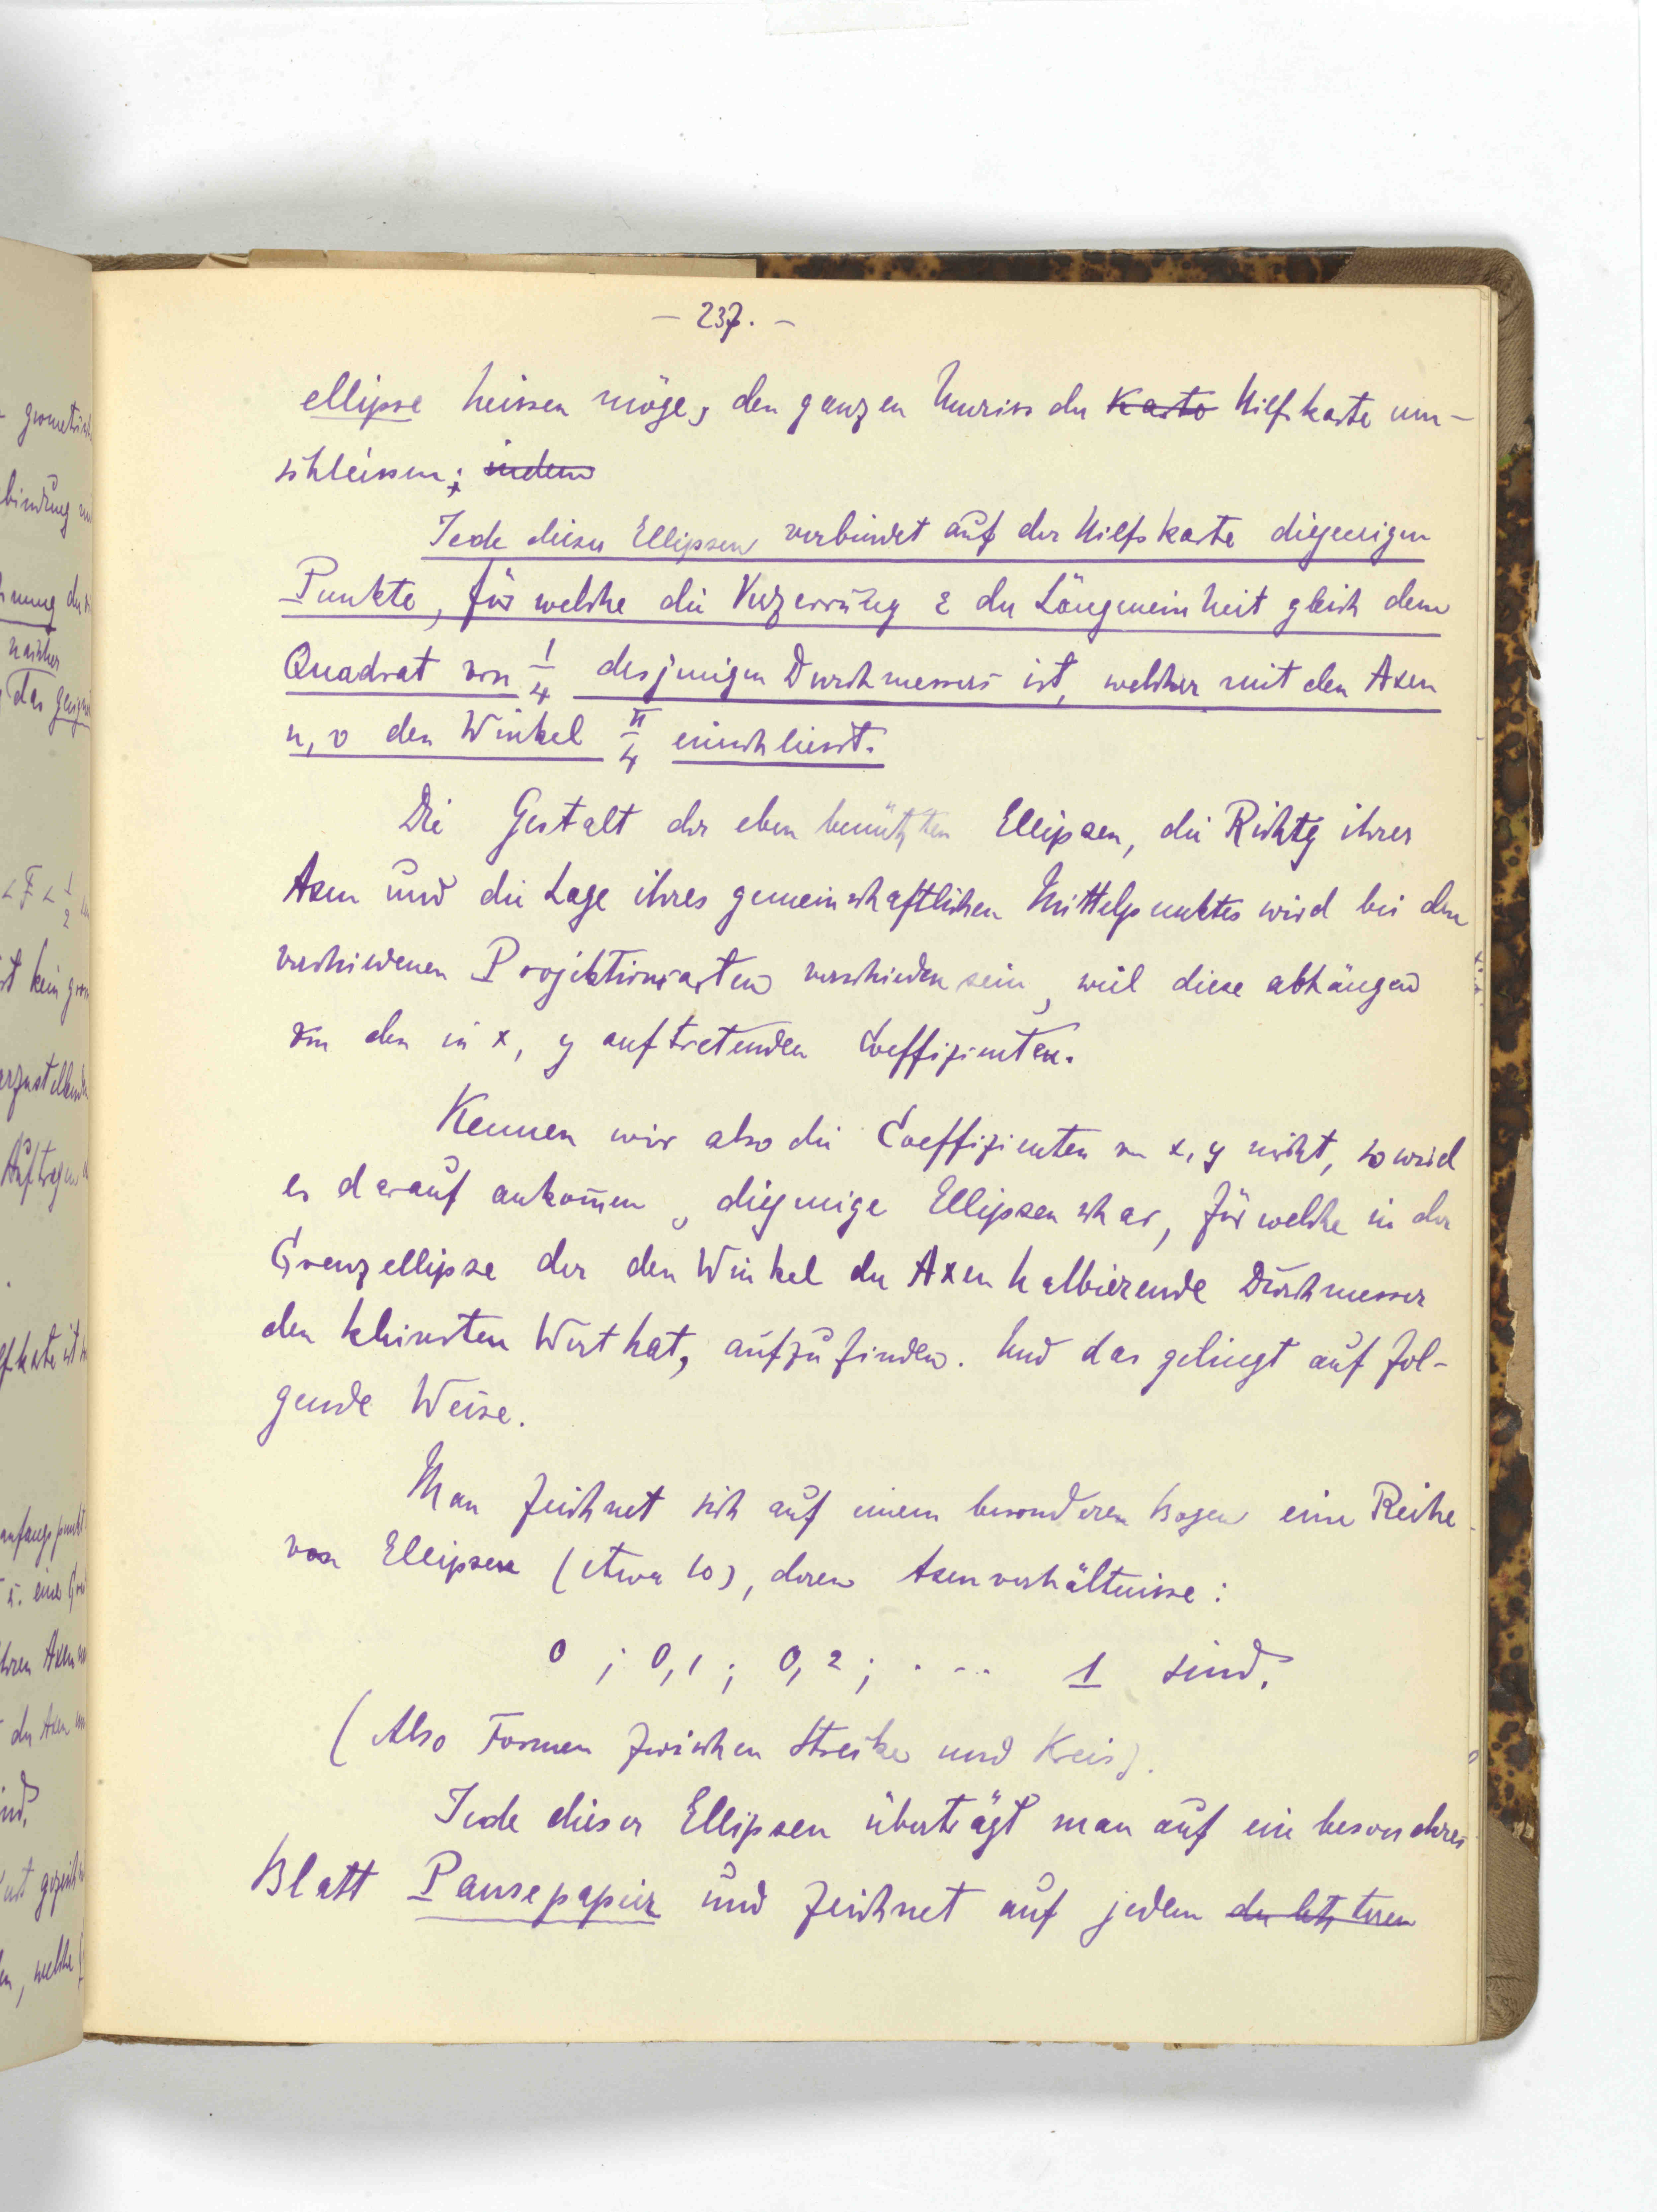 – 237. –
ellipse heissen möge, den ganzen Umriss der Karte Hilfskarte um-
schleissen; indem
Jede dieser Ellipsen verbindet auf der Hilfskarte diejenigen
Punkte, für welche die Verzerrung ε der Längeneinheit gleich dem
Quadrat von 1/4 desjenigen Durchmessers ist, welcher mit den Axen
u, v den Winkel π/4 einschliesst.
Die Gestalt der eben benützten Ellipsen, die Richtg ihrer
Axen und die Lage ihres gemeinschaftlichen Mittelpunktes wird bei den
verschiedenen Projektionsarten verschieden sein, weil diese abhängen
von den in x, y auftretenden Coeffizienten.
Kennen wir also die Coeffizienten von x, y nicht, so wird
es darauf ankom̅en, diejenige Ellipsenschar, für welche in der
Grenzellipse der den Winkel der Axen halbierende Durchmesser
den kleinsten Wert hat, aufzufinden. Und das gelingt auf fol-
gende Weise.
Man zeichnet sich auf einem besonderen Bogen eine Reihe
von Ellipsen (etwa 10), deren Axenverhältnisse:
0 ; 0,1 ; 0,2 ; . . . . 1 sind.
(Also Formen zwischen Strecke und Kreis).
Jede dieser Ellipsen überträgt man auf ein besonderes
Blatt Pausepapier und zeichnet auf jedem der letzteren